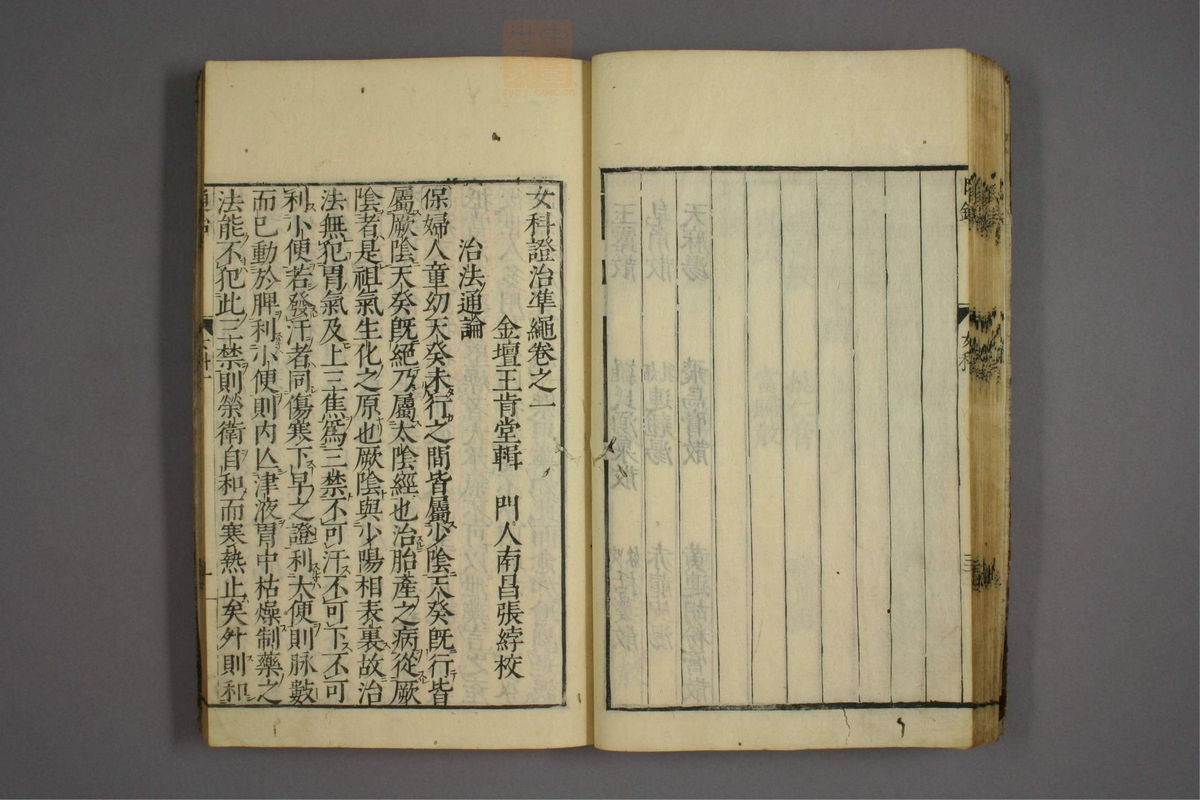 目錄
女科
三
女科證治準繩卷之一
金壇王肯堂輯　門人南昌張綍校
治法通論
保婦人童幼天癸未行之間皆屬少陰天癸既行皆
屬厥陰天癸既絕乃屬太陰經也治胎產之病從厥
陰者是祖氣生化之原也厥陰與少陽相表裏故治
法無犯胃氣及上三焦爲三禁不可汗不可下不可
利小便若發汗者同傷寒下早之證利大便則脉數
而已動於脾利小便則内亾津液胃中枯燥制藥之
法能不犯此三禁則榮衛自和而寒熱止矣外則和